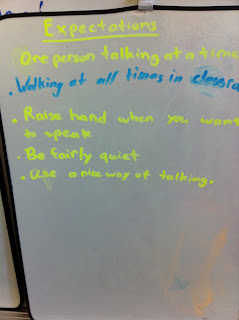 Expectations
One person talking at a time
. Walking at all times in classro
. Raise hand when you want
to speak
. Be fairly quiet
. Use a nice way of talking.